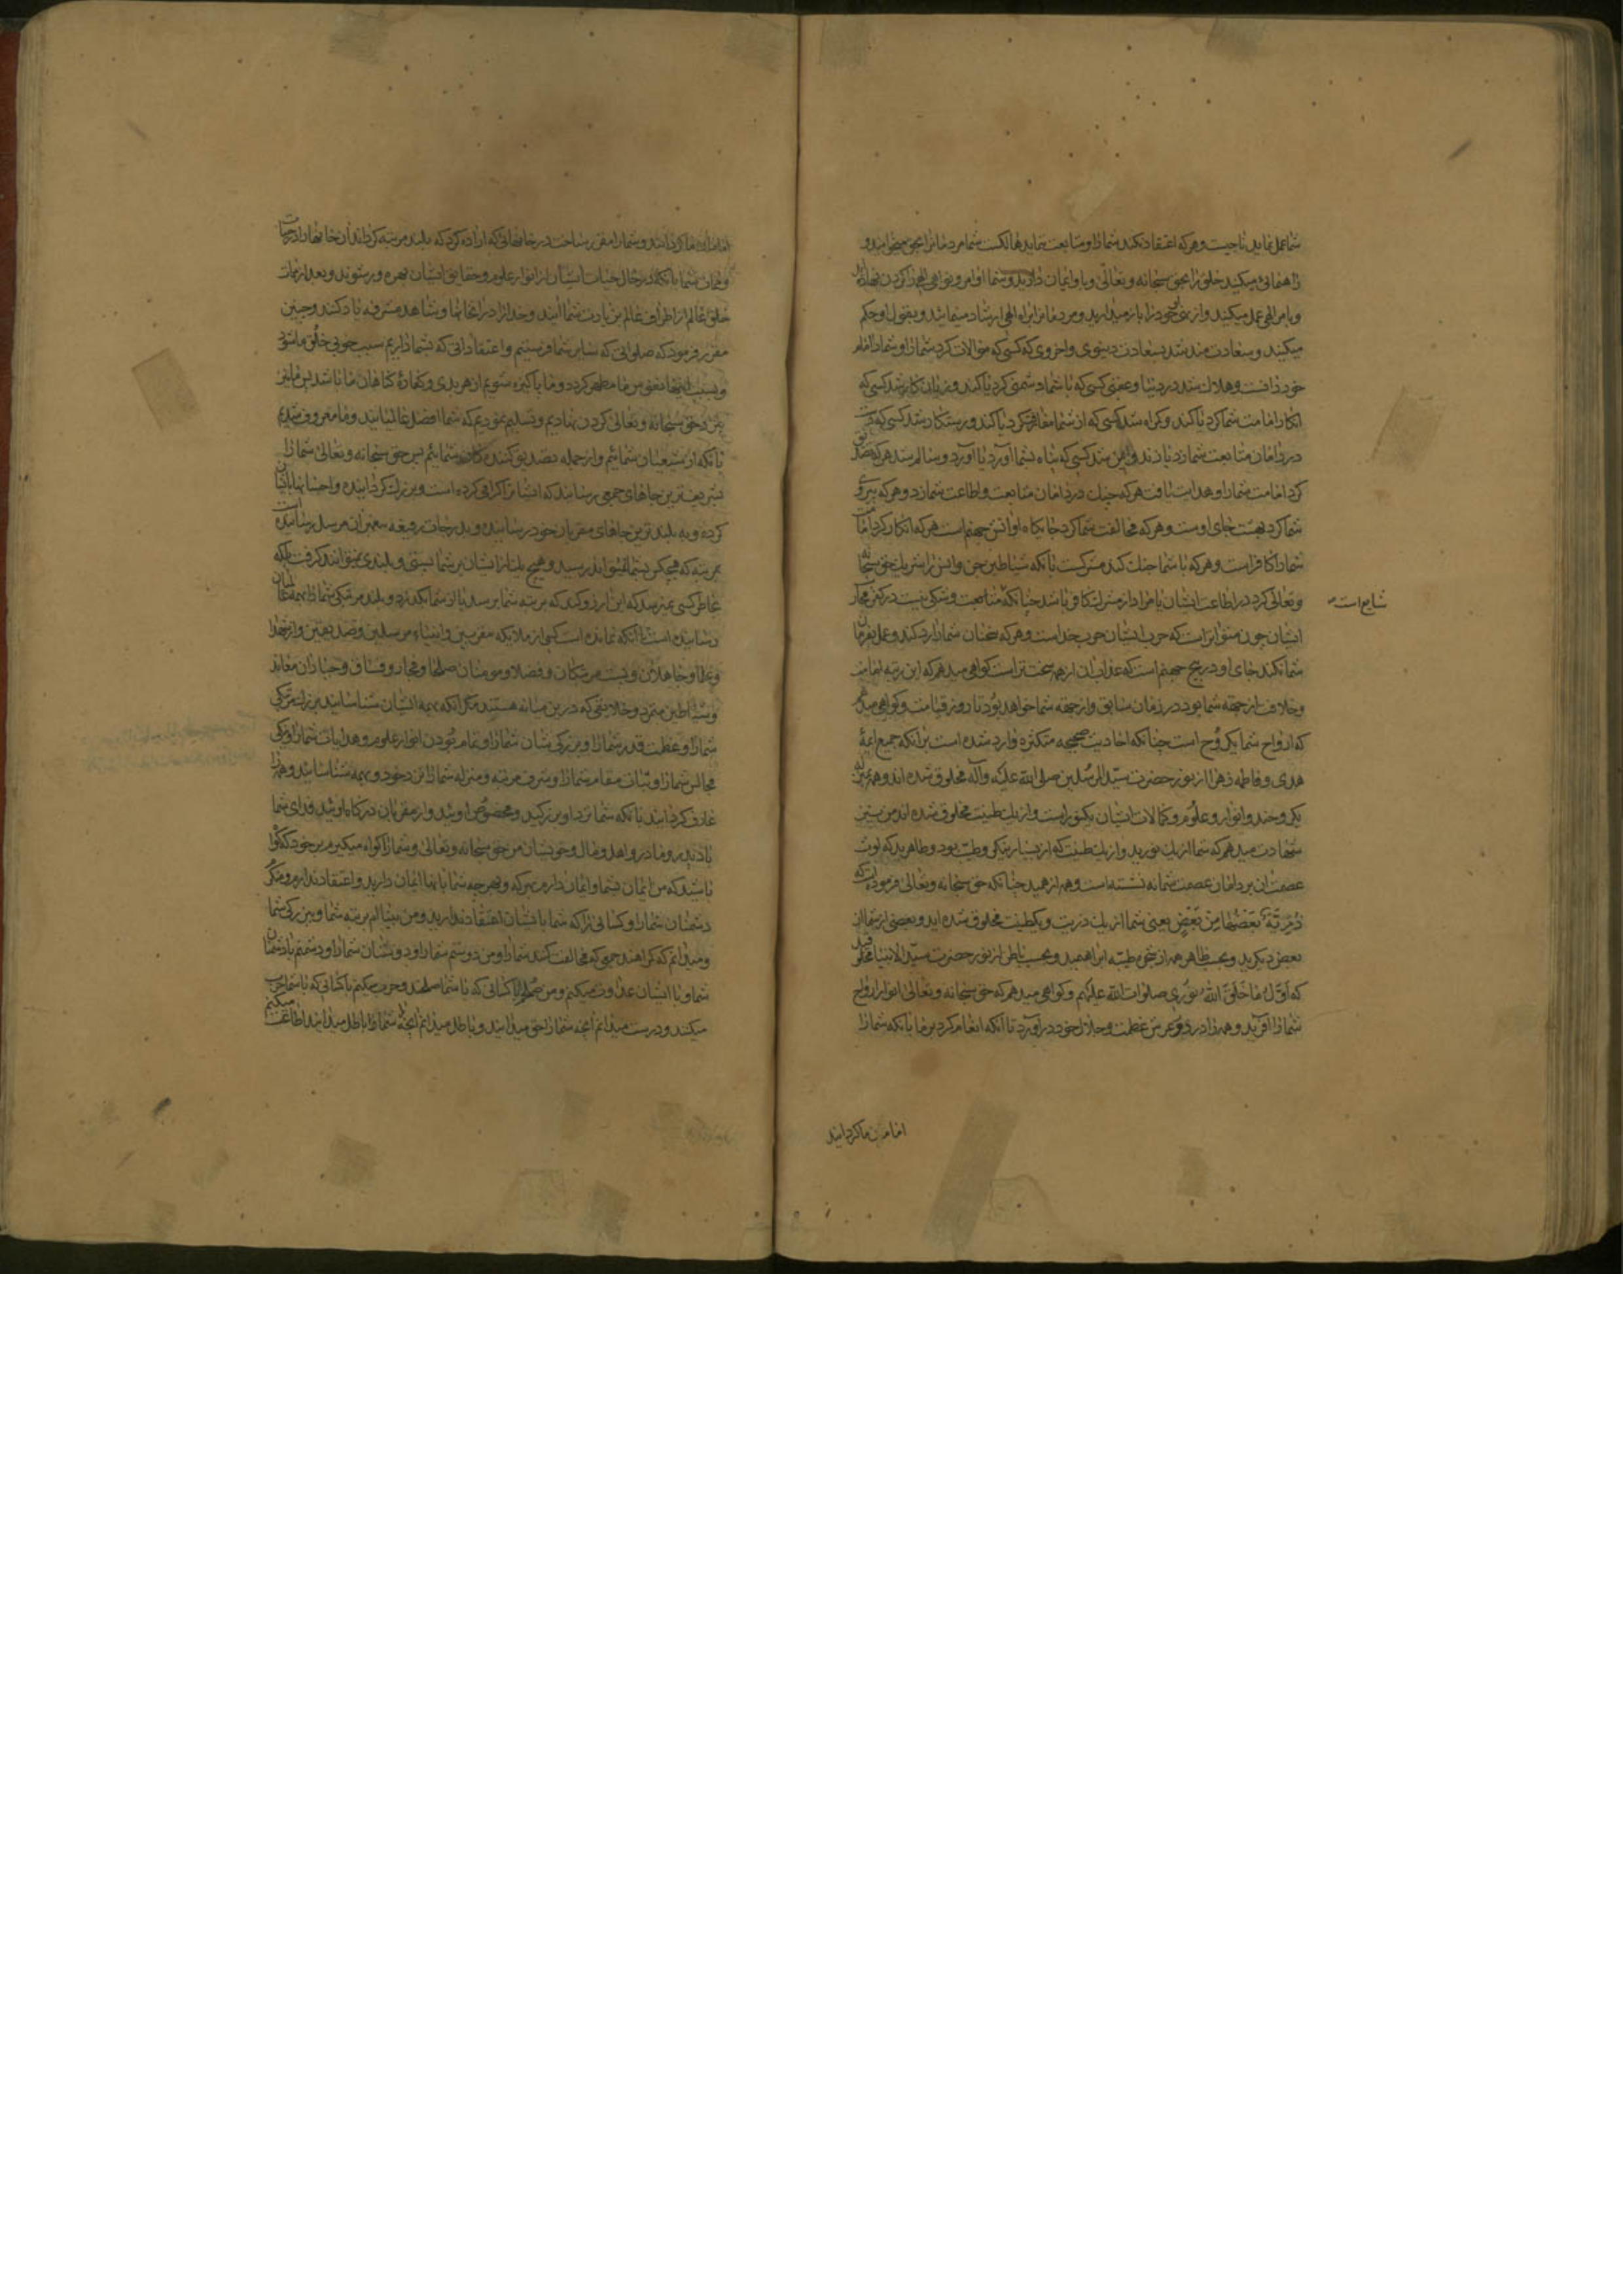 شما عمل نماید ناجیست و هر که اعتقاد نکند شما را و متابعت ننماید هالکست شما مردمانرا بحق میخوانید و
راهنمائی میکنید خلق را بحق سبحانه و تعالی و باو ایمان دارید و شما اوامر و نواهی الهی را
و بامر الهی عمل میکنید و از نهی خود را باز میدارید و مردمانرا براه الهی ارشاد مینمائید و بقول او حکم
میکنید و سعادت مند شد بسعادت دینوی و اخروی که کسی که موالات کرد شما را و شما را امام
خود دانست و هلاک شد در دنیا و عقبی کسی که با شما دشمنی کرد یا کند و زیان کار شد کسی که
انکار امامت شما کرد یا کند و گمراه شد کسی که از شما مفارقت کرد یا کند و رستکار شد کسی که دست
در دامان متابعت شما زد یا زند و ایمن شد کسی که پناه بشما آورد یا آورد و سالم شد هر که تصدیق
کرد امامت شما را و هدایت یافت هر که چنک در دامان متابعت و اطاعت شما زد و هر که پیروی
شما کرد بهشت جای اوست و هر که مخالفت شما کرد جایکاه او آتش جهنم است هر که انکار کرد امامت
شما را کافر است و هر که با شما جنک کند مشرکست بآنکه شیاطین جن و انس را شریک حق سبحانه
و تعالی کرد در اطاعت ایشان یا مراد از مشرک کافر باشد چنانکه شایع است و شکی نیست در کفر محارب
ایشان چون متواتر است که حرب ایشان حرب خداست و هر که سخنان شما را رد کند و عمل بفرمان
شما نکند جای او در درک جهنم است که عذاب آن از همه سخت تر است کواهی میدهم که این رتبه امامت
و خلافت از جهة شما بود در زمان سابق و از جهة شما خواهد بود تا روز قیامت و کواهی میدهم
که ارواح شما یک روح است چنانکه احادیث صحیحه متکثره وارد شده است بر آنکه جمیع ائمهٔ
هدی و فاطمه زهرا از نور حضرت سید المرسلین صلی الله علیه و آله مخلوق شده اند و همه بمنزله
یک روحند و انوار و علوم و کمالات ایشان یکنور است و از یک طینت مخلوق شده اند
شهادت میدهم که شما از یک نورید و از یک طینت که از بسیار نیکی و طیب بود و طاهرید که لوث
عصیان بر دامان عصمت شما نه نشسته است و همه از همید چنانکه حق سبحانه و تعالی فرموده است که
ذُرِّيَّةً بَعْضُهَا مِنْ بَعْضٍ یعنی شما از یک ذریت و یکطینت مخلوق شده اید و بعضی از شما از
بعض دیکرید و بحسب ظاهر همه از طیبه ابراهیمید و بحسب باطن از نور حضرت سید الانبیا مخلوقید
که اوّل ما خلق الله نوری صلوات الله علیکم و کواهی میدهم که حق سبحانه و تعالی انوار ارواح
شما را آفرید و همه را در دور عرش عظمت و جلال خود در آورد تا آنکه انعام کرد بر ما بآنکه شما را
شایع است
امامان ما کردانید
امامان ما کردانید و شما را مقرر ساخت در خانهائی که اراده کرد که بلند مرتبه کرداند آن خانها را
شما بآنکه در حال حیات ایشان از انوار علوم و حقایق ایشان بهره ور شوند و بعد از ممات
خلق عالم از اطراف عالم بزیارت شما آیند و خدا را در انخانها و مشاهد مشرفه یاد کنند و چنین
مقرر فرمود که صلواتی که بنا بر شما فرستیم و اعتقاداتی که بشما داریم سبب خوبی خلق ما شود
و بسبب اینها نفوس ما مطهر کردد و ما پاکیزه شویم از هر بدی و کفارهٔ کناهان ما باشد پس ما نیز
نزد حق سبحانه و تعالی کردن نهادیم و تسلیم نمودیم که شما افضل عالمیانید و ما معروف شدیم
بآنکه از شیعیان شمائیم و از جمله تصدیق کنندکان شمائیم پس حق سبحانه و تعالی شما را
بشریفترین جاهای جمعی رساند که ایشانرا کرامی کرده است و بزرک کردانیده و احسانها بایشان
کرده و به بلند ترین جاهای مقربان خود رسانیده و بدرجات رفیعه پیغمبران مرسل رسانیده است
بمرتبه که هیچکس بشما نتواند رسید و هیچ یک از ایشان بر شما پیشی و بلندی نتوانند کرفت بلکه
بخاطر کسی نمیرسد که این آرزو کند که بمرتبه شما برسد یا از شما بکذرد و بلند مرتبکی شما را بهمه عالمیان
رسانیده است تا آنکه نمانده است کسی از ملایکه مقربین و انبیاء مرسلین و صدیقین و از شهدا
و علما و جاهلان و پست مرتبکان و فضلا و مومنان صلحا و فجار و فساق و جباران معاند
و شیاطین متمرد و خلایقی که درین میانه هستند مکر آنکه بهمه ایشان شناسانید بزرک مرتبکی
شما را و عظمت قدر شما را و بزرکی شان شما را و تمام بودن انوار علوم و هدایات شما را و نیکی
مجالس شما را و ثبات مقام شما را و شرف مرتبه و منزله شما را نزد خود و بهمه شناسانید و همه را
عارف کردانید بآنکه شما نزد او بزرکید و مخصوص اوئید و از مقربان درکاه اوئید فدای شما
باد پدر و مادر و اهل و مال و خویشان من حق سبحانه و تعالی و شما را کواه میکیرم بر خود که کواه
باشید که من ایمان بشما و ایمان دارم بهر که و بهر چه شما بآنها ایمان دارید و اعتقاد ندارم و منکر
دشمنان شما را و کسانی را که شما بایشان اعتقاد ندارید و من بینا ام بمرتبه شما و بزرکی شما
و میدانم که کمراهند جمعی که مخالفت کنند شما را و من دوستم شما را و دوستان شما را و دشمنم با دشمنان
شما و با ایشان عداوت میکنم و من صلحم با کسانی که با شما صلحند و حرب میکنم با کسانی که با شما حرب
میکنند و درست میدانم آنچه شما را حق میدانید و باطل میدانم آنچه شما را باطل میدانید اطاعت میکنم